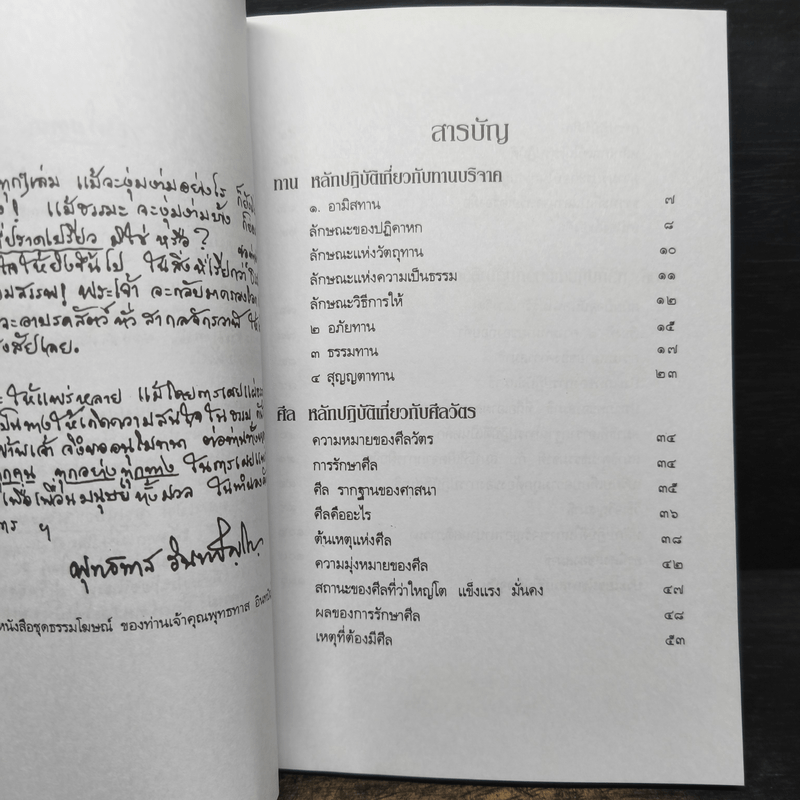 ทุกๆเล่ม แม้จะงุ่มง่ามอย่างไร ก็ยัง
! แม้ธรรมะ จะงุ่มง่ามบ้าง
ปราดเปรียว มิใช่ หรือ?
ให้ยิ่งขึ้นไป ในสิ่งที่เรียกว่า
พระเจ้า จะกลับมาครองโลก
สัตว์ ทั่ว สากลจักรวาฬ
สงสัยเลย.
ให้แพร่หลาย แม้โดยการเผยแผ่
เป็นทางให้เกิดความสนใจใน ธรรม
ข้าพเจ้า จึงขออนุโมทนา ต่อท่านทั้ง
ทุกคน ทุกอย่างทุกทาง ในการเผยแผ่
เพื่อเพื่อนมนุษย์ ทั้งมวล
ฯ
พุทธทาส อินทปัญโญ
หนังสือชุดธรรมโฆษณ์ ของท่านเจ้าคุณพุทธทาส
สารบัญ
ทาน หลักปฏิบัติเกี่ยวกับทานบริจาค
๑. อามิสทาน ๗
ลักษณะของปฏิคาหก ๘
ลักษณะแห่งวัตถุทาน ๑๐
ลักษณะแห่งความเป็นธรรม ๑๑
ลักษณะวิธีการให้ ๑๒
๒ อภัยทาน ๑๕
๓ ธรรมทาน ๑๗
๔ สุญญตาทาน ๒๓
ศีล หลักปฏิบัติเกี่ยวกับศีลวัตร
ความหมายของศีลวัตร ๓๔
การรักษาศีล ๓๔
ศีล รากฐานของศาสนา ๓๕
ศีลคืออะไร ๓๖
ต้นเหตุแห่งศีล ๓๘
ความมุ่งหมายของศีล ๔๒
สถานะของศีลที่ว่าใหญ่โต แข็งแรง มั่นคง ๔๗
ผลของการรักษาศีล ๔๘
เหตุที่ต้องมีศีล ๕๓